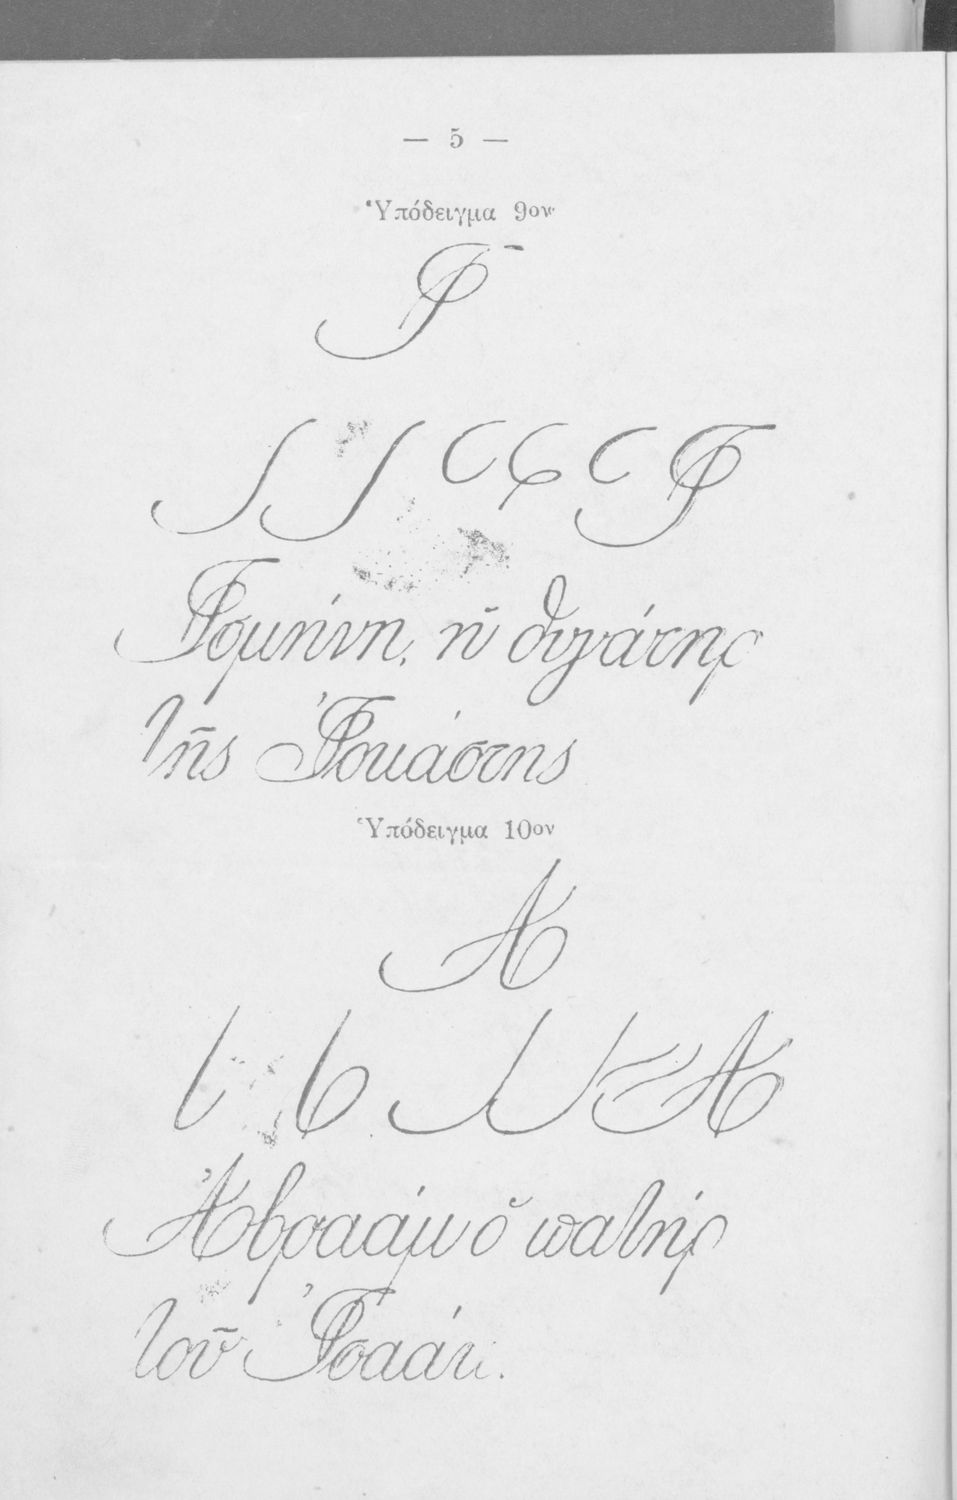 — 5 —
Ὑπόδειγμα 9ον
Ι
Ι
Ισμήνη, ἡ θυγάτηρ
τῆς Ἰοκάστης
Ὑπόδειγμα 10ον
Α
Α
Ἀβραάμ ὁ πατήρ
τοῦ Ἰσαάκ.